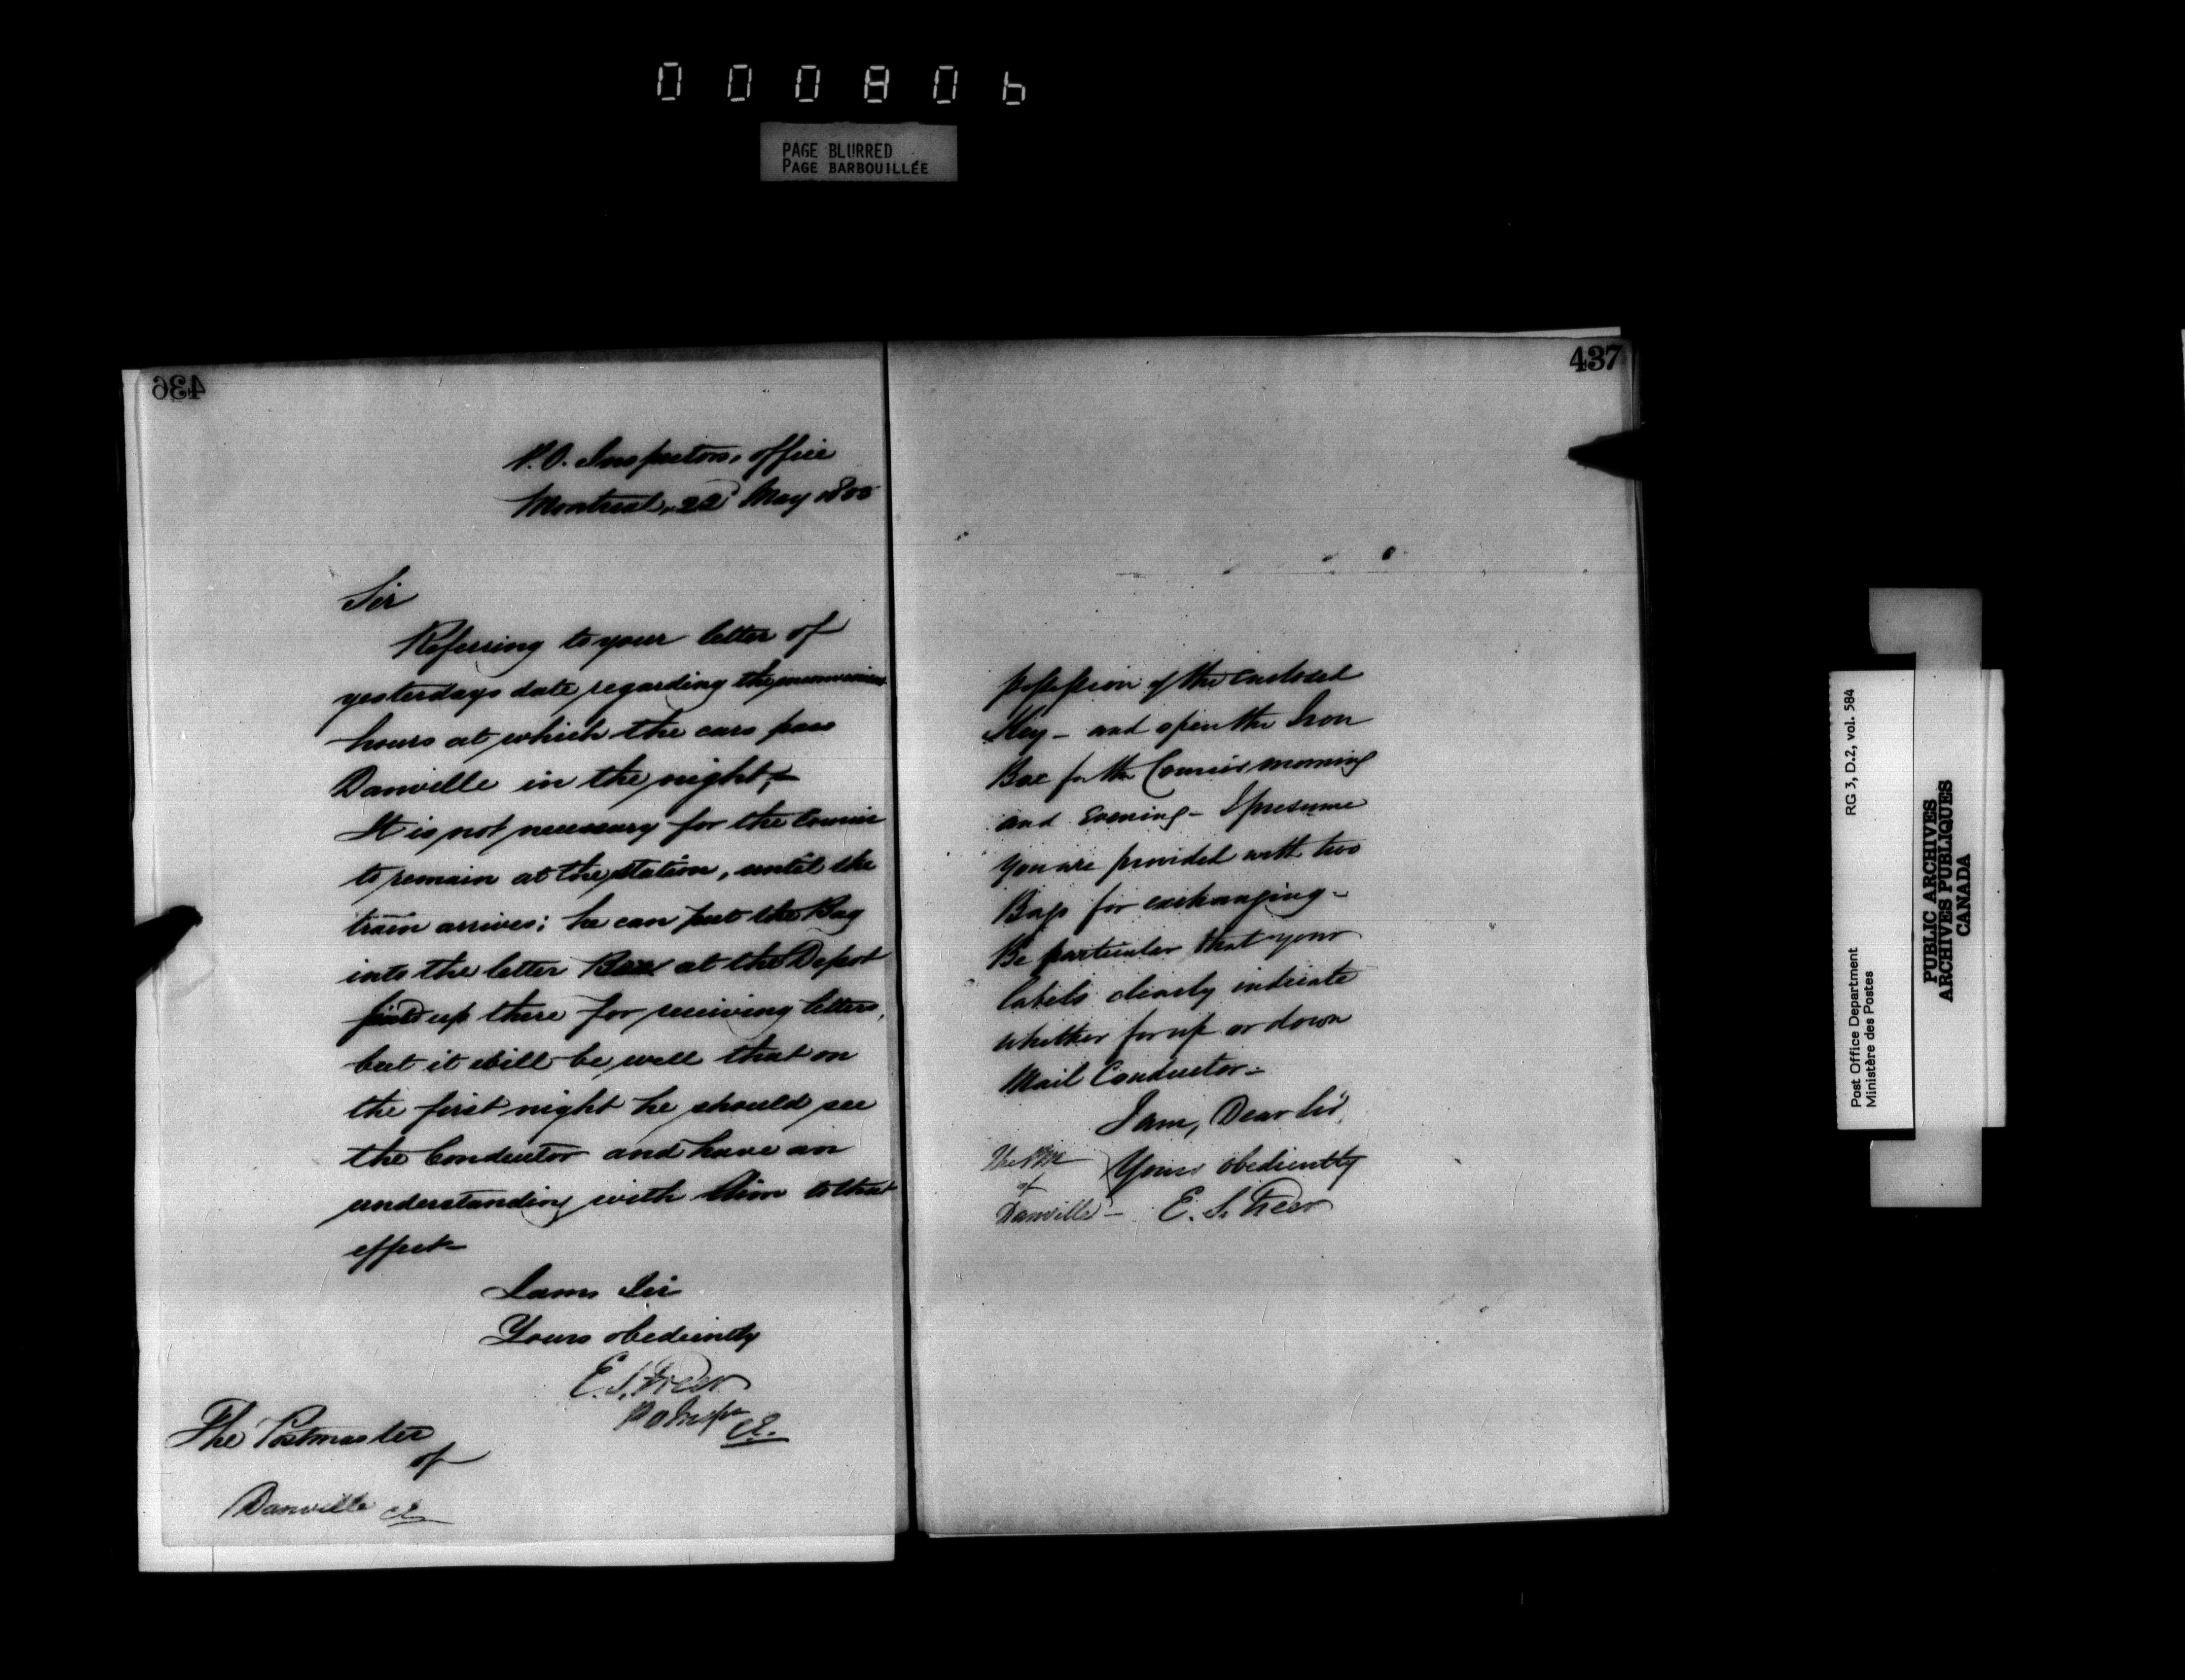 000806
PAGE BLURRED
PAGE BARBOUILLÉE
436
P.O. Inspectors office
Montreal, 22d May
Sir
Referring to your letter of
yesterdays date regarding the inconvenient
hours at which the cars pass
Danville in the night,–
It is not necessary for the Courier
to remain at the station, until the
train arrives; he can put the Bag
into the letter Box at the Depot
up there for receiving letters,
but it will be well that on
the first night he should see
the Conductor and have an
understanding with him to that
effect–
I am Sir
Yours obediently
E. S. Freer
P O Inspr CE.
The Postmaster
of
Danville CE
437
possession of the enclosed
Key – and open the Iron
Box for the Courier morning
and Evening – I presume
you are provided with two
Bags for exchanging –
Be particular that your
labels clearly indicate
whether for up or down
Mail Conductor –
I am, Dear Sir,
Yours obediently
E. S. Freer
The PM
of
Danville –
Post Office Department
Ministère des Postes
RG 3, D.2, vol. 584
PUBLIC ARCHIVES
ARCHIVES PUBLIQUES
CANADA